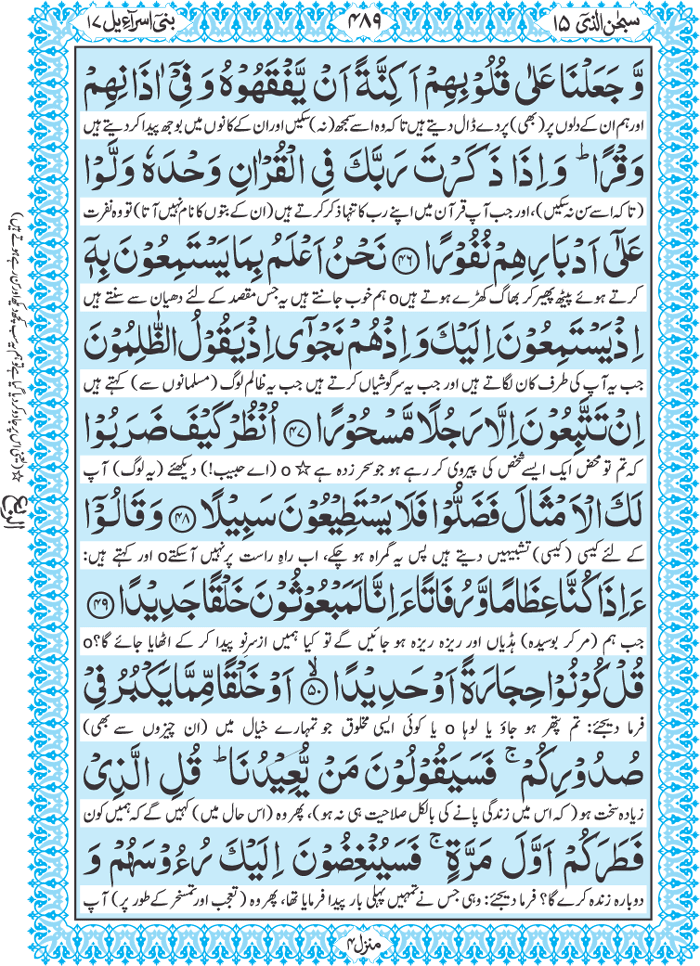 سبحٰن الذی ۱۵
۴۸۹
بنیٓ اسرآءیل ۱۷
وَّ جَعَلْنَا عَلٰی قُلُوْبِهِمْ اَكِنَّةً اَنْ یَّفْقَهُوْهُ وَ فِیْۤ اٰذَانِهِمْ
اور ہم ان کے دلوں پر (بھی) پردے ڈال دیتے ہیں تاکہ وہ اسے سمجھ (نہ) سکیں اور ان کے کانوں میں بوجھ پیدا کر دیتے ہیں
وَقْرًا ؕ وَ اِذَا ذَكَرْتَ رَبَّكَ فِی الْقُرْاٰنِ وَحْدَهٗ وَلَّوْا
(تاکہ اسے سن نہ سکیں)، اور جب آپ قرآن میں اپنے رب کا تنہا ذکر کرتے ہیں (ان کے بتوں کا نام نہیں آتا) تو وہ نفرت
عَلٰۤی اَدْبَارِهِمْ نُفُوْرًا ﴿۴۶﴾ نَحْنُ اَعْلَمُ بِمَا یَسْتَمِعُوْنَ بِهٖۤ
کرتے ہوئے پیٹھ پھیر کر بھاگ کھڑے ہوتے ہیں o ہم خوب جانتے ہیں یہ جس مقصد کے لئے دھیان سے سنتے ہیں
اِذْ یَسْتَمِعُوْنَ اِلَیْكَ وَ اِذْ هُمْ نَجْوٰۤی اِذْ یَقُوْلُ الظّٰلِمُوْنَ
جب یہ آپ کی طرف کان لگاتے ہیں اور جب یہ سرگوشیاں کرتے ہیں جب یہ ظالم لوگ (مسلمانوں سے) کہتے ہیں
اِنْ تَتَّبِعُوْنَ اِلَّا رَجُلًا مَّسْحُوْرًا ﴿۴۷﴾ اُنْظُرْ كَیْفَ ضَرَبُوْا
کہ تم تو محض ایک ایسے شخص کی پیروی کر رہے ہو جو سحر زدہ ہے ☆ o (اے حبیب!) دیکھئے (یہ لوگ) آپ
لَكَ الْاَمْثَالَ فَضَلُّوْا فَلَا یَسْتَطِیْعُوْنَ سَبِیْلًا ﴿۴۸﴾ وَ قَالُوْۤا
کے لئے کیسی (کیسی) تشبیہیں دیتے ہیں پس یہ گمراہ ہو چکے، اب راہِ راست پر نہیں آ سکتے o اور کہتے ہیں:
ءَاِذَا كُنَّا عِظَامًا وَّ رُفَاتًا ءَاِنَّا لَمَبْعُوْثُوْنَ خَلْقًا جَدِیْدًا ﴿۴۹﴾
جب ہم (مر کر بوسیدہ) ہڈیاں اور ریزہ ریزہ ہو جائیں گے تو کیا ہمیں ازسرِنو پیدا کر کے اٹھایا جائے گا؟ o
قُلْ كُوْنُوْا حِجَارَةً اَوْ حَدِیْدًا ﴿ۙ۵۰﴾ اَوْ خَلْقًا مِّمَّا یَكْبُرُ فِیْ
فرما دیجئے: تم پتھر ہو جاؤ یا لوہا o یا کوئی ایسی مخلوق جو تمہارے خیال میں (ان چیزوں سے بھی)
صُدُوْرِكُمْ ۚ فَسَیَقُوْلُوْنَ مَنْ یُّعِیْدُنَا ؕ قُلِ الَّذِیْ
زیادہ سخت ہو (کہ اس میں زندگی پانے کی بالکل صلاحیت ہی نہ ہو)، پھر وہ (اس حال میں) کہیں گے کہ ہمیں کون
فَطَرَكُمْ اَوَّلَ مَرَّةٍ ۚ فَسَیُنْغِضُوْنَ اِلَیْكَ رُءُوْسَهُمْ وَ
دوبارہ زندہ کرے گا؟ فرما دیجئے: وہی جس نے تمہیں پہلی بار پیدا فرمایا تھا، پھر وہ (تعجب اور تمسخر کے طور پر) آپ
الربع
منزل ۴